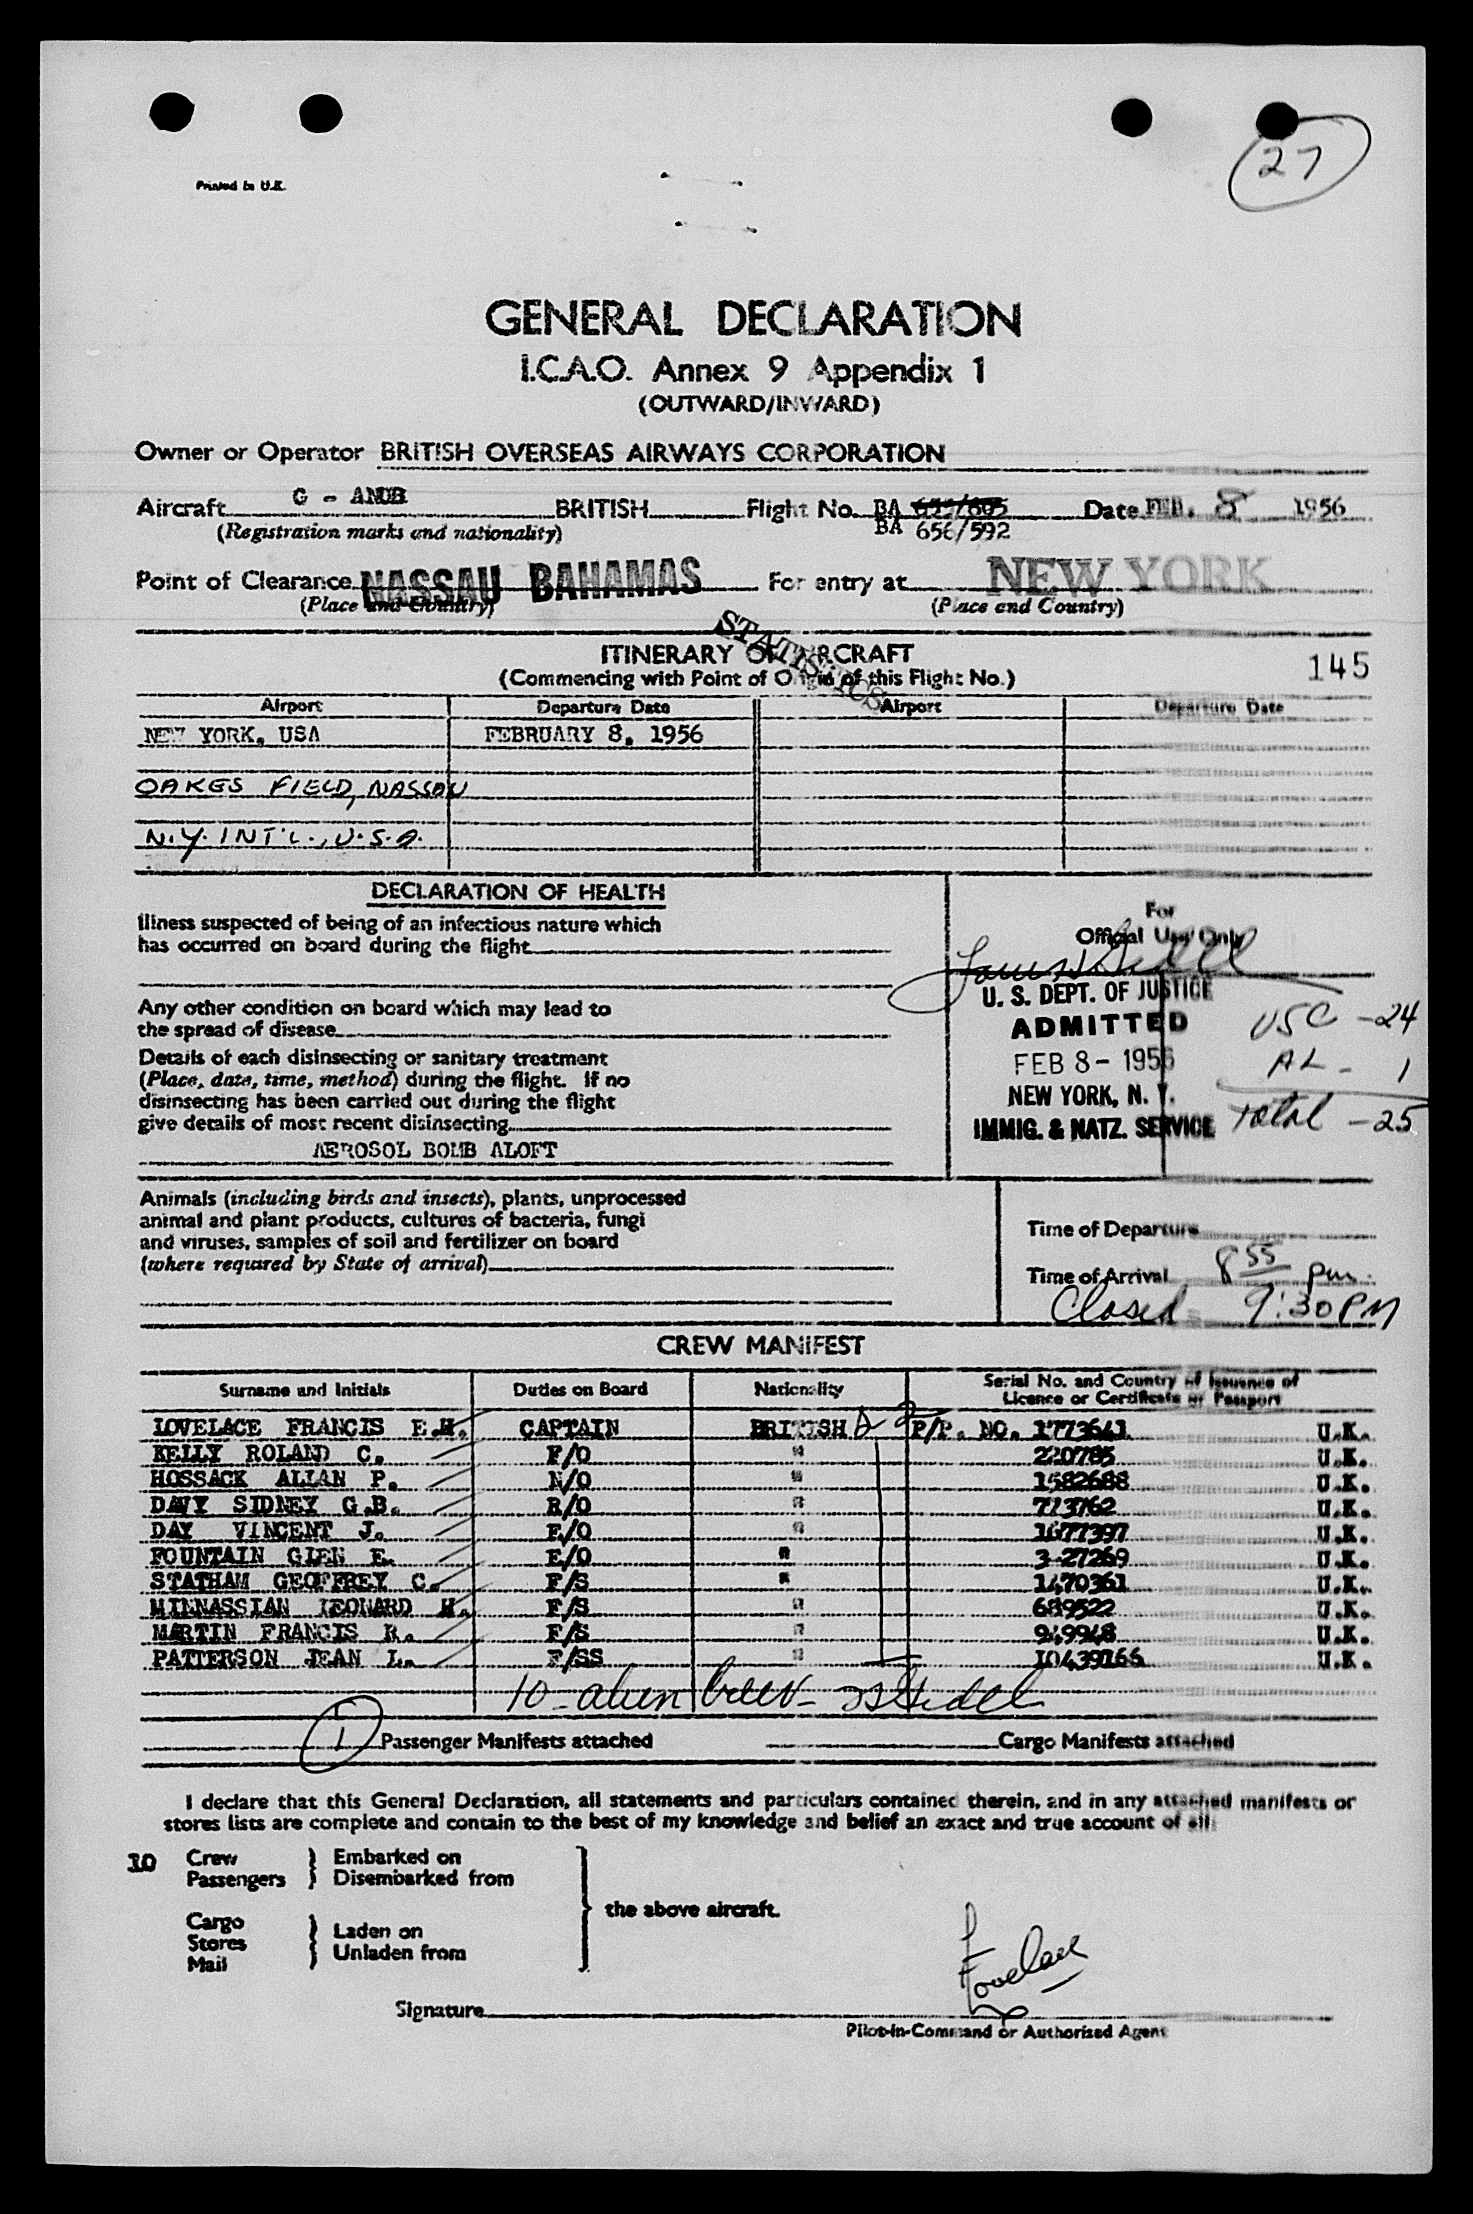 27
Printed in U.K.
GENERAL DECLARATION
I.C.A.O. Annex 9 Appendix 1
(OUTWARD/INWARD)
Owner or Operator BRITISH OVERSEAS AIRWAYS CORPORATION
Aircraft G - ANDB BRITISH Flight No. BA Date FEB. 8 1956
(Registration marks and nationality) BA 656/592
Point of Clearance NASSAU BAHAMAS For entry at NEW YORK
(Place and Country) (Place and Country)
STATISTICS
ITINERARY OF AIRCRAFT 145
(Commencing with Point of Origin of this Flight No.)
Airport Departure Date Airport Departure Date
NEW YORK, USA FEBRUARY 8, 1956
OAKES FIELD, NASSAU
N.Y. INT'L., U.S.A.
DECLARATION OF HEALTH
Illness suspected of being of an infectious nature which
has occurred on board during the flight
For
Official Use Only
Any other condition on board which may lead to
the spread of disease
U. S. DEPT. OF JUSTICE
ADMITTED
FEB 8 - 1956
NEW YORK, N. Y.
IMMIG. & NATZ. SERVICE
USC - 24
AL - 1
Total - 25
Details of each disinsecting or sanitary treatment
(Place, date, time, method) during the flight. If no
disinsecting has been carried out during the flight
give details of most recent disinsecting
AEROSOL BOMB ALOFT
Animals (including birds and insects), plants, unprocessed
animal and plant products, cultures of bacteria, fungi
and viruses, samples of soil and fertilizer on board
(where required by State of arrival)
Time of Departure
Time of Arrival 8 55 pm.
Closed 9:30 PM
CREW MANIFEST
Surname and Initials Duties on Board Nationality Serial No. and Country of Issuance of
Licence or Certificate or Passport
LOVELACE FRANCIS E.H. CAPTAIN BRITISH P/P. NO. 1773641 U.K.
KELLY ROLAND C. F/O " 220785 U.K.
HOSSACK ALLAN P. N/O " 1582688 U.K.
DAVY SIDNEY G.B. R/O " 713762 U.K.
DAY VINCENT J. E/O " 1677397 U.K.
FOUNTAIN GLEN E. E/O " 327269 U.K.
STATHAM GEOFFREY C. F/S " 1470361 U.K.
MINNASSIAN LEONARD H. F/S " 689522 U.K.
MARTIN FRANCIS R. F/S " 949948 U.K.
PATTERSON JEAN L. F/SS " 10439166 U.K.
10 - alien crew -
1 Passenger Manifests attached Cargo Manifests attached
I declare that this General Declaration, all statements and particulars contained therein, and in any attached manifests or
stores lists are complete and contain to the best of my knowledge and belief an exact and true account of all:
10 Crew Embarked on
Passengers Disembarked from
the above aircraft.
Cargo
Stores Laden on
Mail Unladen from
Lovelace
Signature
Pilot-in-Command or Authorised Agent